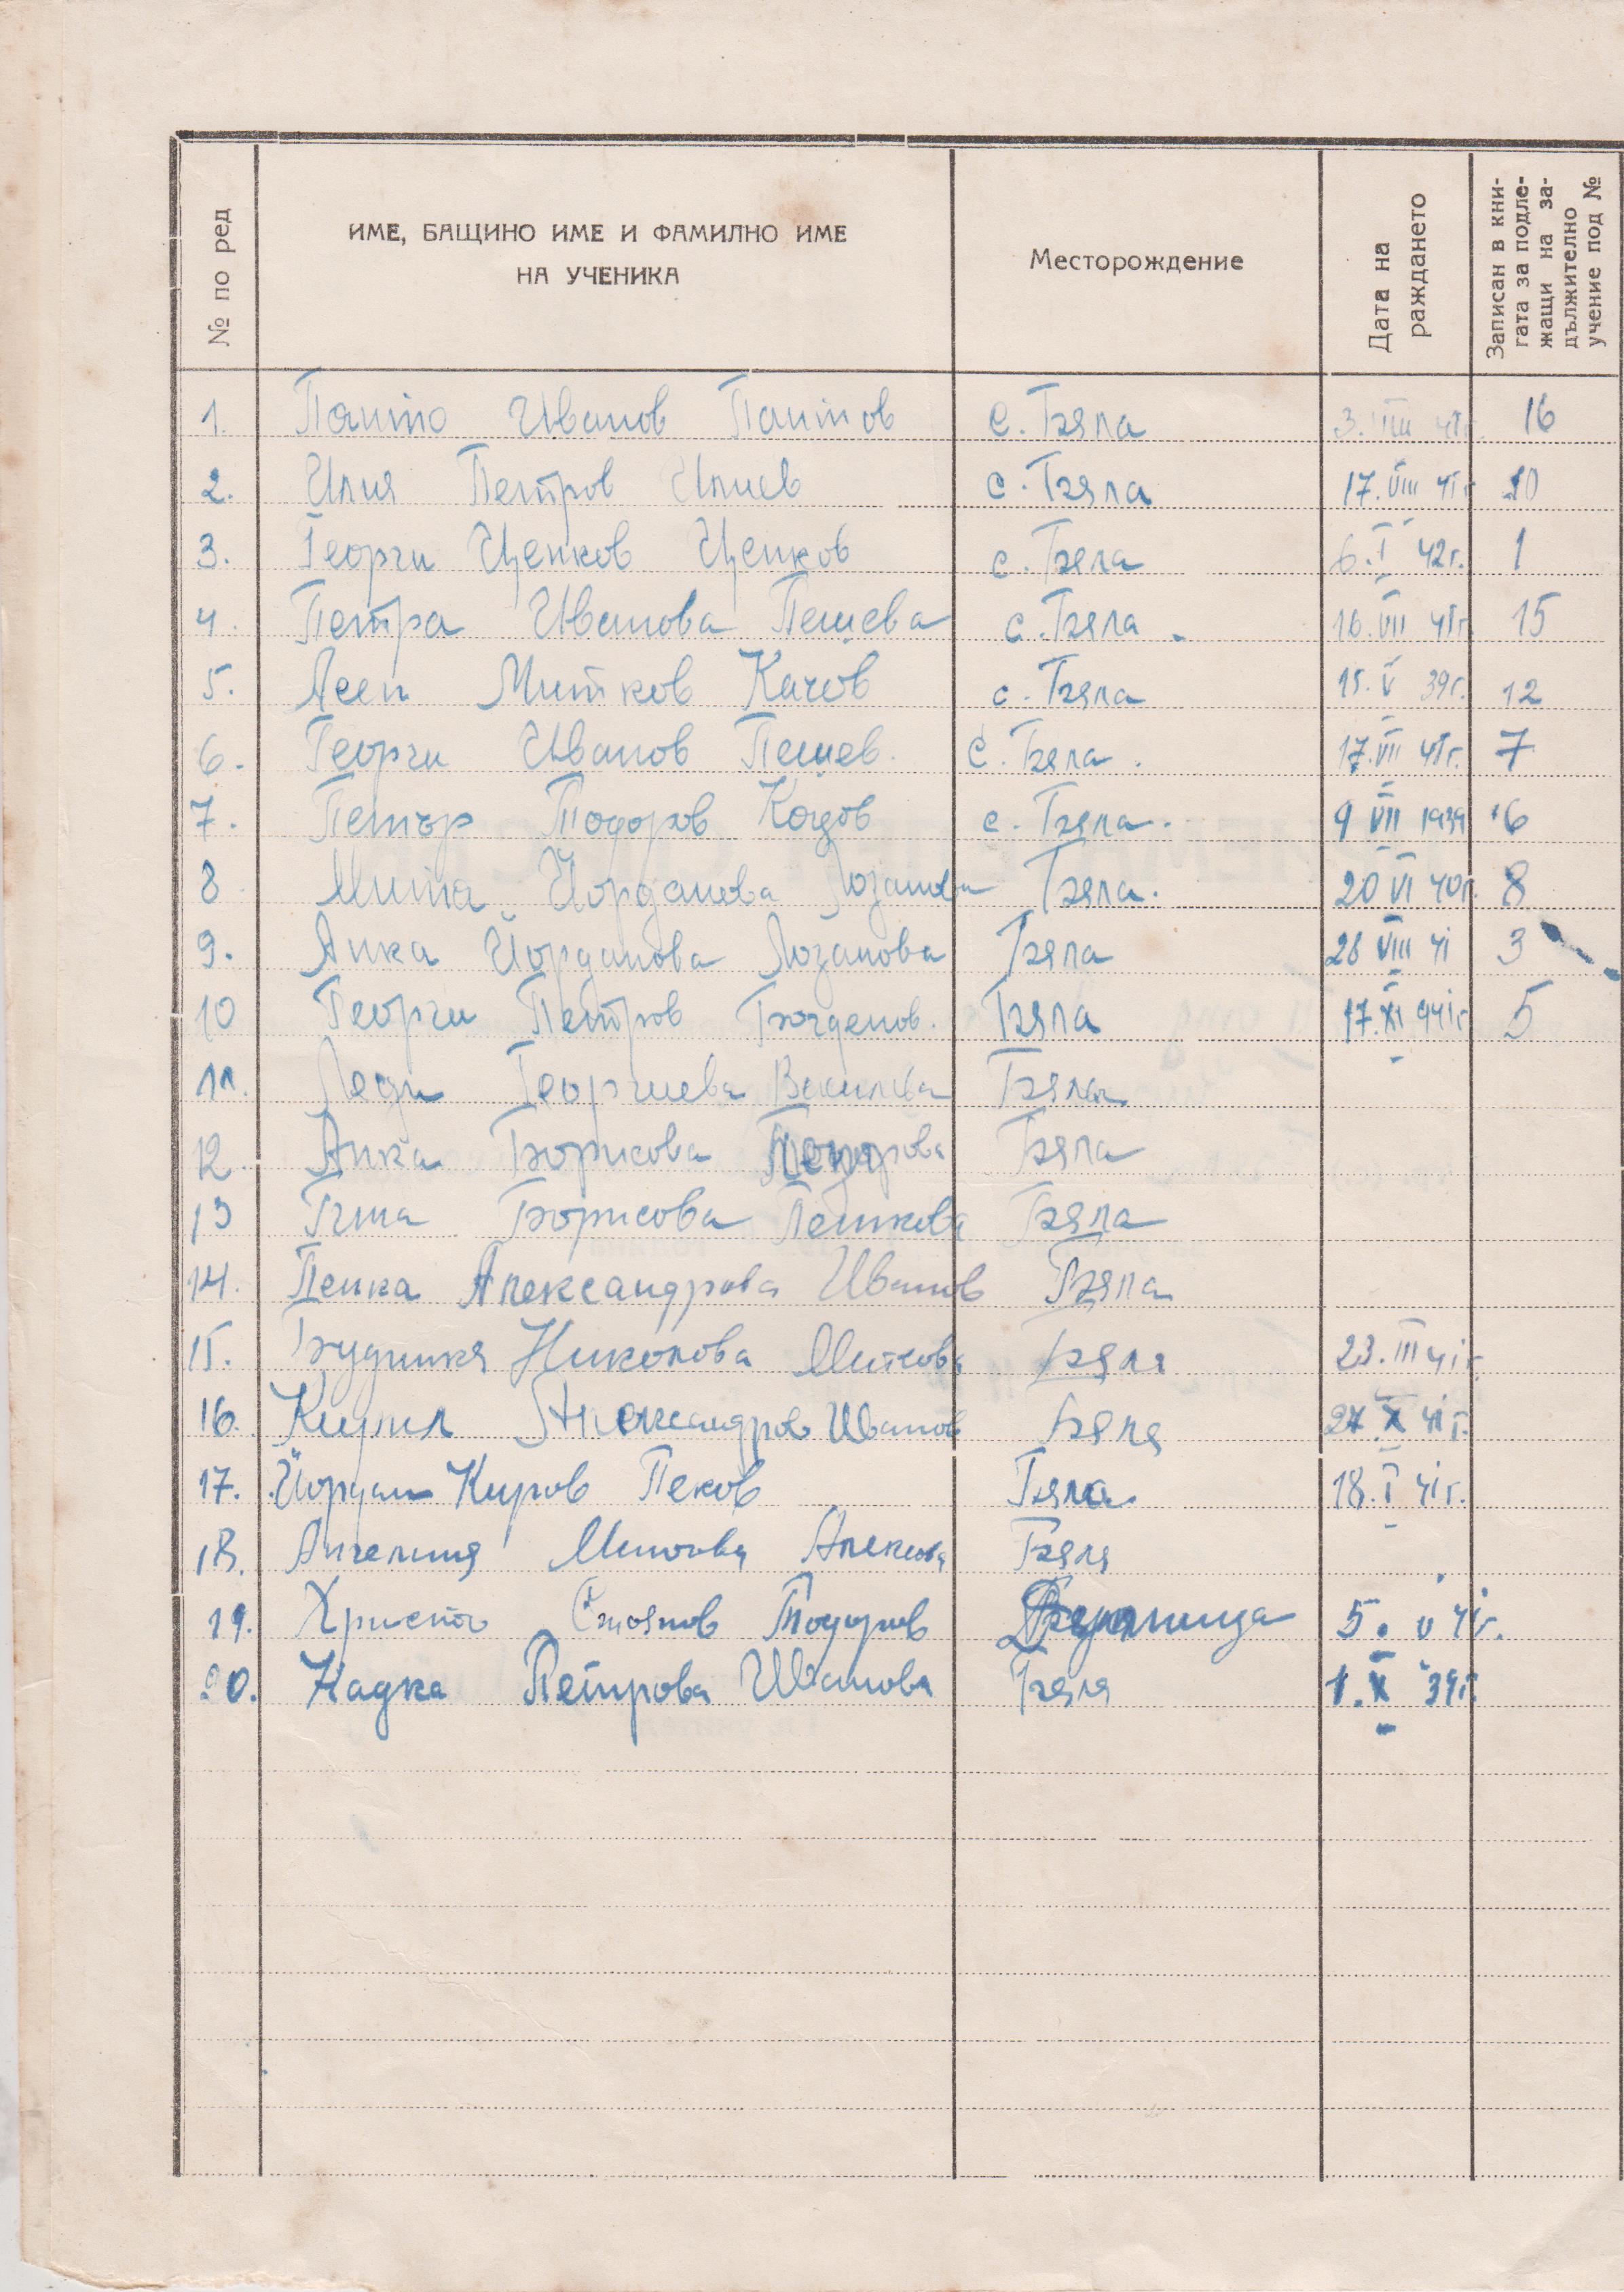 № по ред
ИМЕ, БАЩИНО ИМЕ И ФАМИЛНО ИМЕ
НА УЧЕНИКА
Месторождение
Дата на
раждането
Записан в кни-
гата за подле-
жащи на за-
дължително
учение под №
1. Панто Иванов Пантов с. Бяла 3. VIII 41г. 16
2. Илия Петров Илиев с. Бяла 17. VIII 41г. 10
3. Георги Ценков Ценков с. Бяла 6. I 42г. 1
4. Петра Иванова Пешева с. Бяла 16. VII 41г. 15
5. Асен Митков Качов с. Бяла 15. V 39г. 12
6. Георги Иванов Пешев. с. Бяла. 17. VII 41г. 7
7. Петър Тодоров Коцов с. Бяла. 9 VII 1939 6
8 Мита Йорданова Лозанова Бяла. 20 VI 40г. 8
9. Анка Йорданова Лозанова Бяла 26 VIII 41 3
10 Георги Петров Богденов. Бяла 17. XI 941г 5
11. Леди Георгиева Векилева Бяла
12 Анка Борисова Бяла
13 Борисова Пенкова Бяла
14. Пенка Александрова Иванов Бяла
15. Будинка Николова Миткова Бяла 23. III 41г.
16. Кирил Александров Иванов Бяла 27. X 41г.
17. Йордан Киров Пеков Бяла. 18. I 41г.
18. Ангелина Минчова Алексова Бяла
19. Христо Стоянов Тодоров 5. V 41г.
20. Надка Петрова Иванова Бяла 1. X 39г.